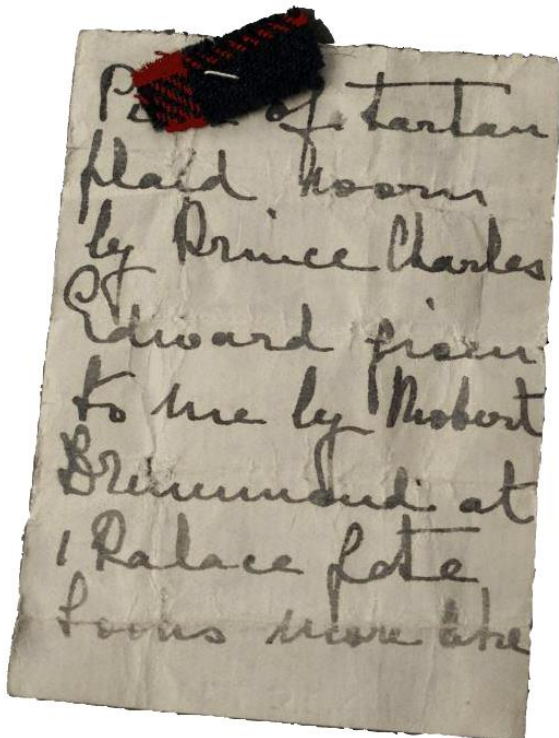 Piece of tartan
plaid worn
by Prince Charles
Edward given
to me by Robert
Drummond at
1 Palace Gate
Looks more like